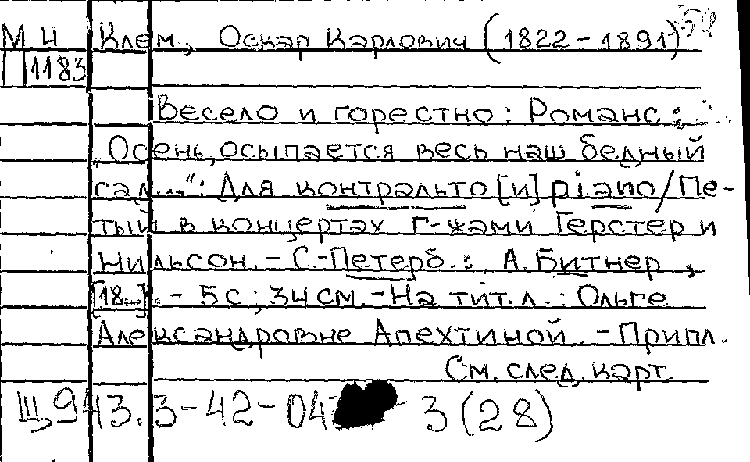 МИ Клем, Оскар Карлович (1822-1891)
1183
Весело и горестно: Романс:
„Осень, осыпается весь наш бедный
сад...": Для контральто [и] piano/Пе-
тый в концертах г-жами Герстер и
Нильсон. - С.-Петерб.: А. Битнер,
[18..]. - 5 с.; 34 см. - На тит. л.: Ольге
Александровне Апехтиной. - Припл.
См. след. карт.
Щ943.3-42-04 - 3(28)